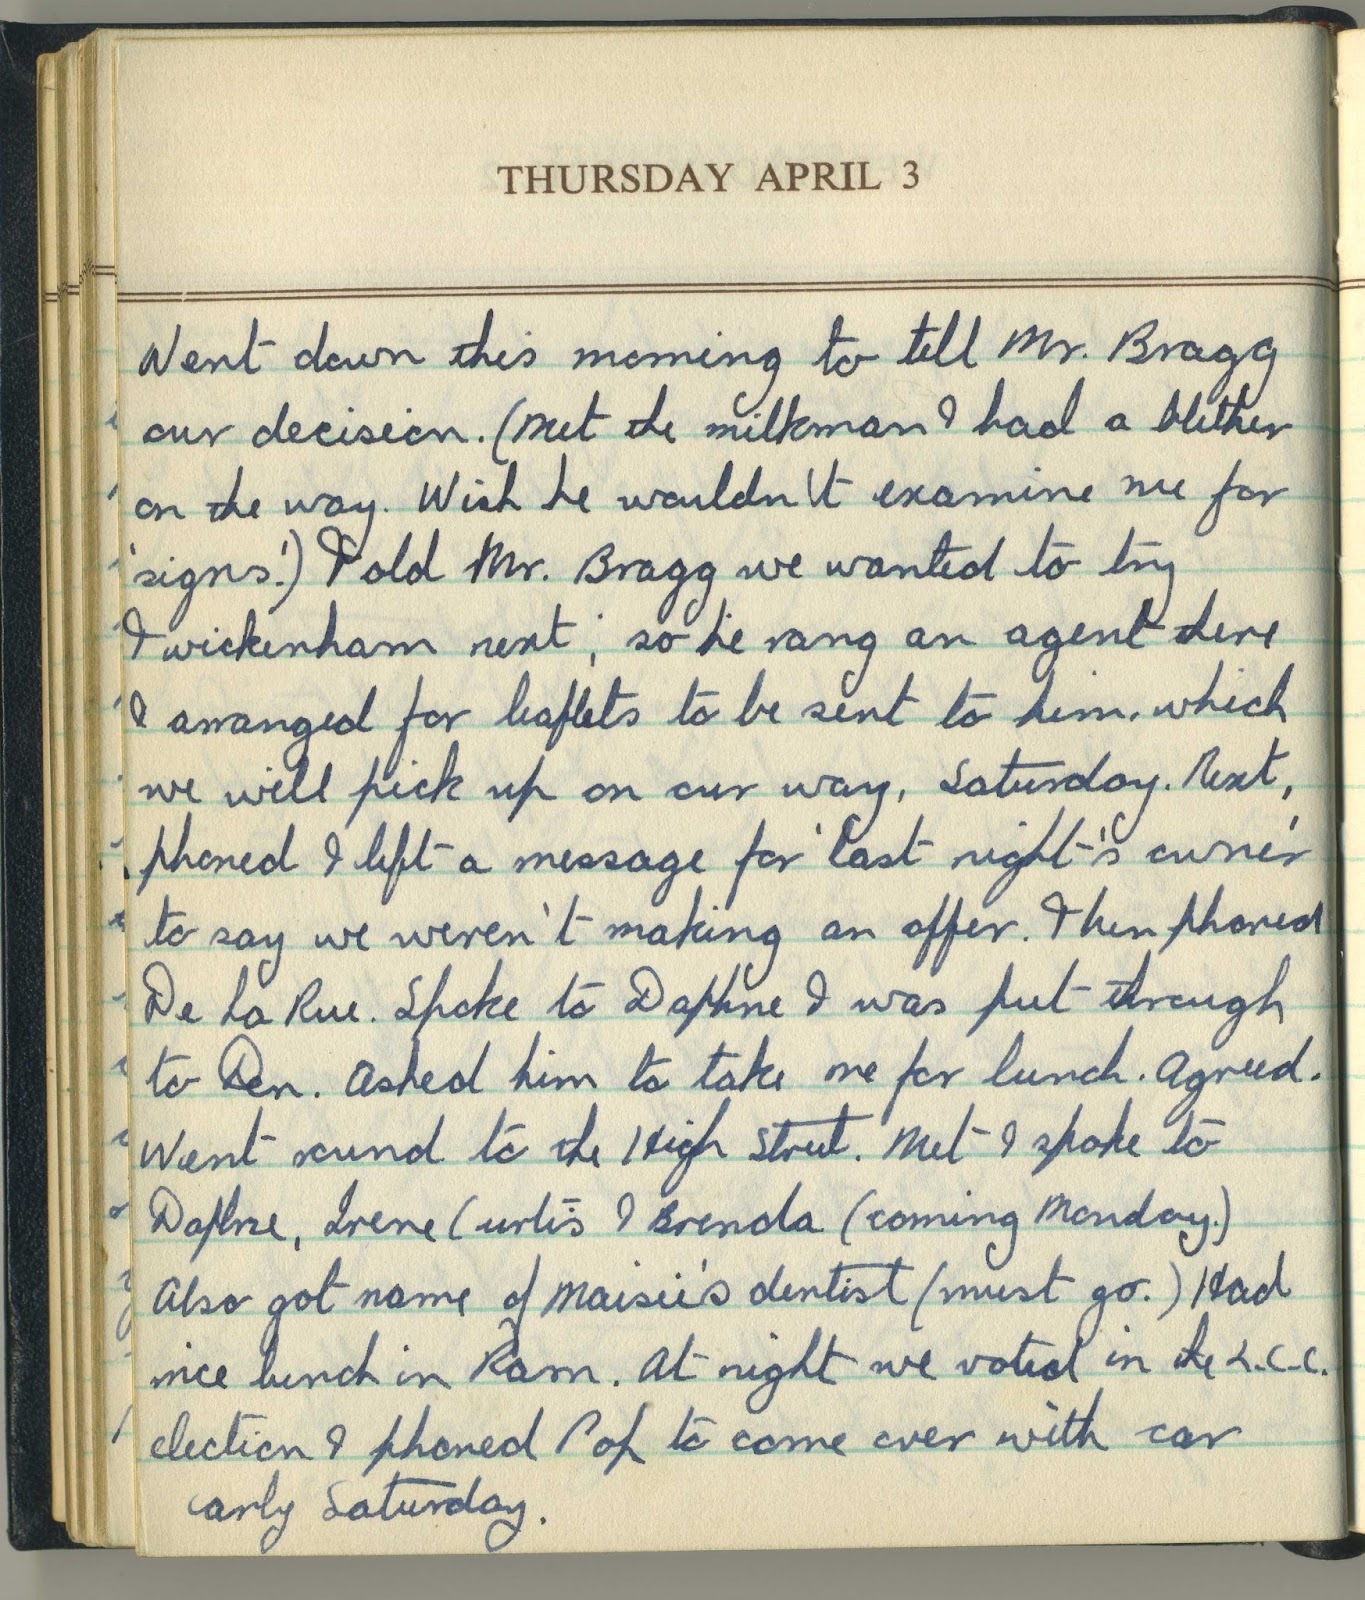 THURSDAY APRIL 3
Went down this morning to tell Mr. Bragg
our decision. (Met the milkman & had a blether
on the way. Wish he wouldn't examine me for
'signs'.) Told Mr. Bragg we wanted to try
Twickenham next, so he rang an agent there
& arranged for leaflets to be sent to him, which
we will pick up on our way, Saturday. Next,
phoned & left a message for 'last night's' owner
to say we weren't making an offer. Then phoned
De La Rue. Spoke to Daphne & was put through
to Den. Asked him to take me for lunch. Agreed.
Went round to the High Street. Met & spoke to
Daphne, Irene Curtis & Brenda (coming Monday.)
Also got name of Maisie's dentist (must go.) Had
nice lunch in Ram. At night we voted in the L.C.C.
election & phoned Pop to come over with car
early Saturday.